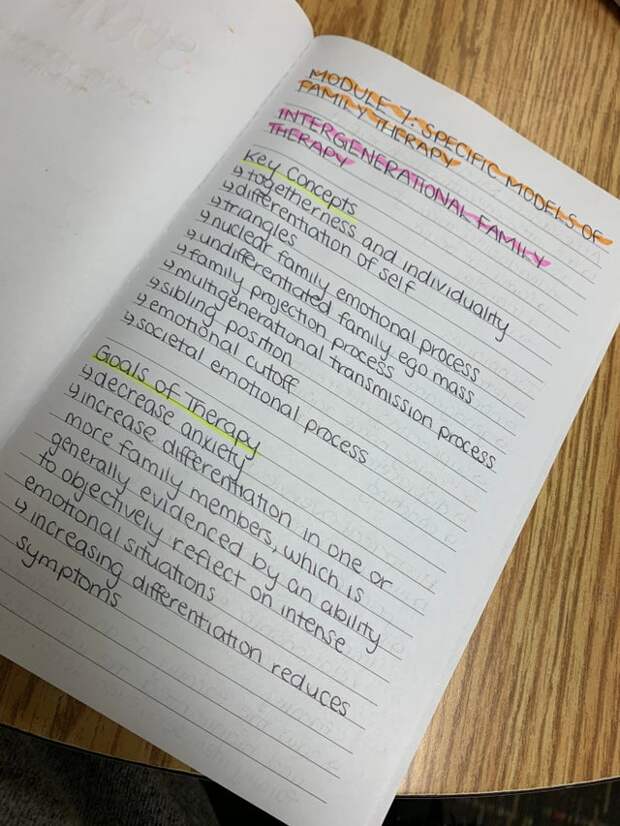 MODULE 7: SPECIFIC MODELS OF
FAMILY THERAPY
INTERGENERATIONAL FAMILY
THERAPY
Key Concepts
↳ togetherness and individuality
↳ differentiation of self
↳ triangles
↳ nuclear family emotional process
↳ undifferentiated family ego mass
↳ family projection process
↳ multigenerational transmission process
↳ sibling position
↳ emotional cutoff
↳ societal emotional process
Goals of Therapy
↳ decrease anxiety
↳ increase differentiation in one or
more family members, which is
generally evidenced by an ability
to objectively reflect on intense
emotional situations
↳ increasing differentiation reduces
symptoms